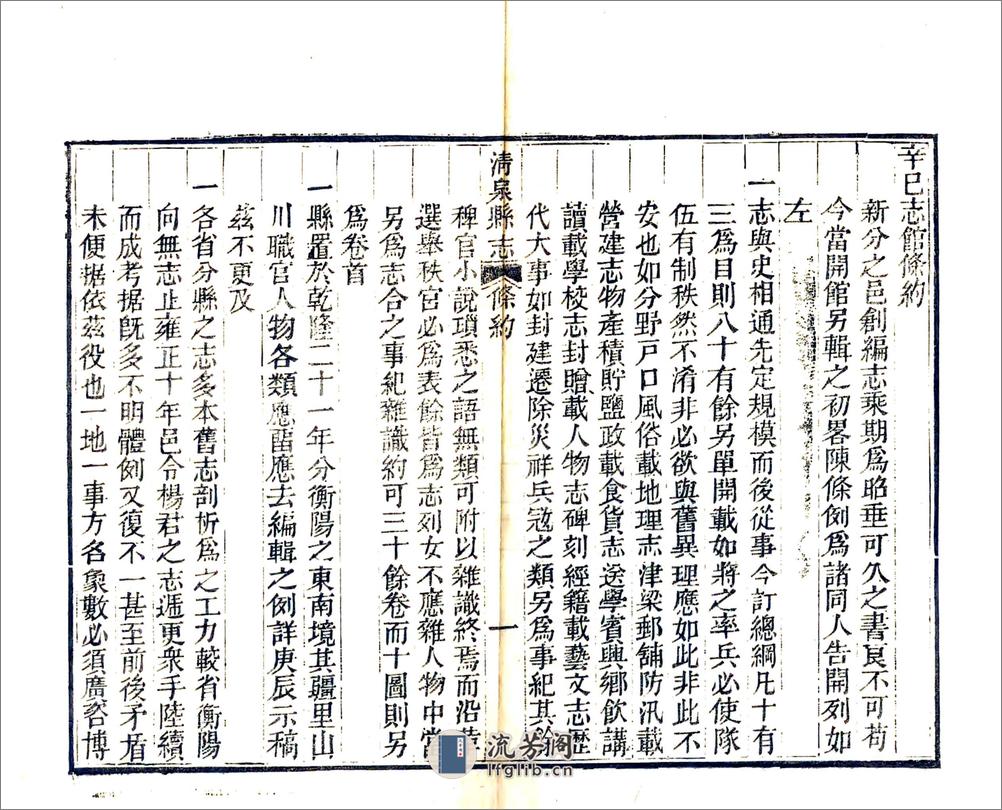 辛巳志館條約
新分之邑創編志乘期爲昭垂可久之書良不可苟
今當開館另輯之初畧陳條例爲諸同人告開列如
左
一志與史相通先定規模而後從事今訂總綱凡十有
三爲目則八十有餘另單開載如將之率兵必使隊
伍有制秩然不淆非必欲與舊異理應如此非此不
安也如分野戸口風俗載地理志津梁郵舖防汛載
營建志物產積貯鹽政載食貨志送學賓興鄉飲講
讀載學校志封贈載人物志碑刻經籍載藝文志歷
代大事如封建遷除災祥兵寇之類另爲事紀其餘
清泉縣志
條約
一
稗官小說瑣悉之語無類可附以雜識終焉而沿革
選舉秩官必爲表餘皆爲志列女不應雜人物中當
另爲志合之事紀雜識約可三十餘卷而十圖則另
爲卷首
一縣置於乾隆二十一年分衡陽之東南境其疆里山
川職官人物各類應畱應去編輯之例詳庚辰示稿
茲不更及
一各省分縣之志多本舊志剖析爲之工力較省衡陽
向無志止雍正十年邑令楊君之志遞更衆手陸續
而成考据旣多不明體例又復不一甚至前後矛盾
未便据依茲役也一地一事方名象數必須廣咨博
流芳閣
lfglib.cn